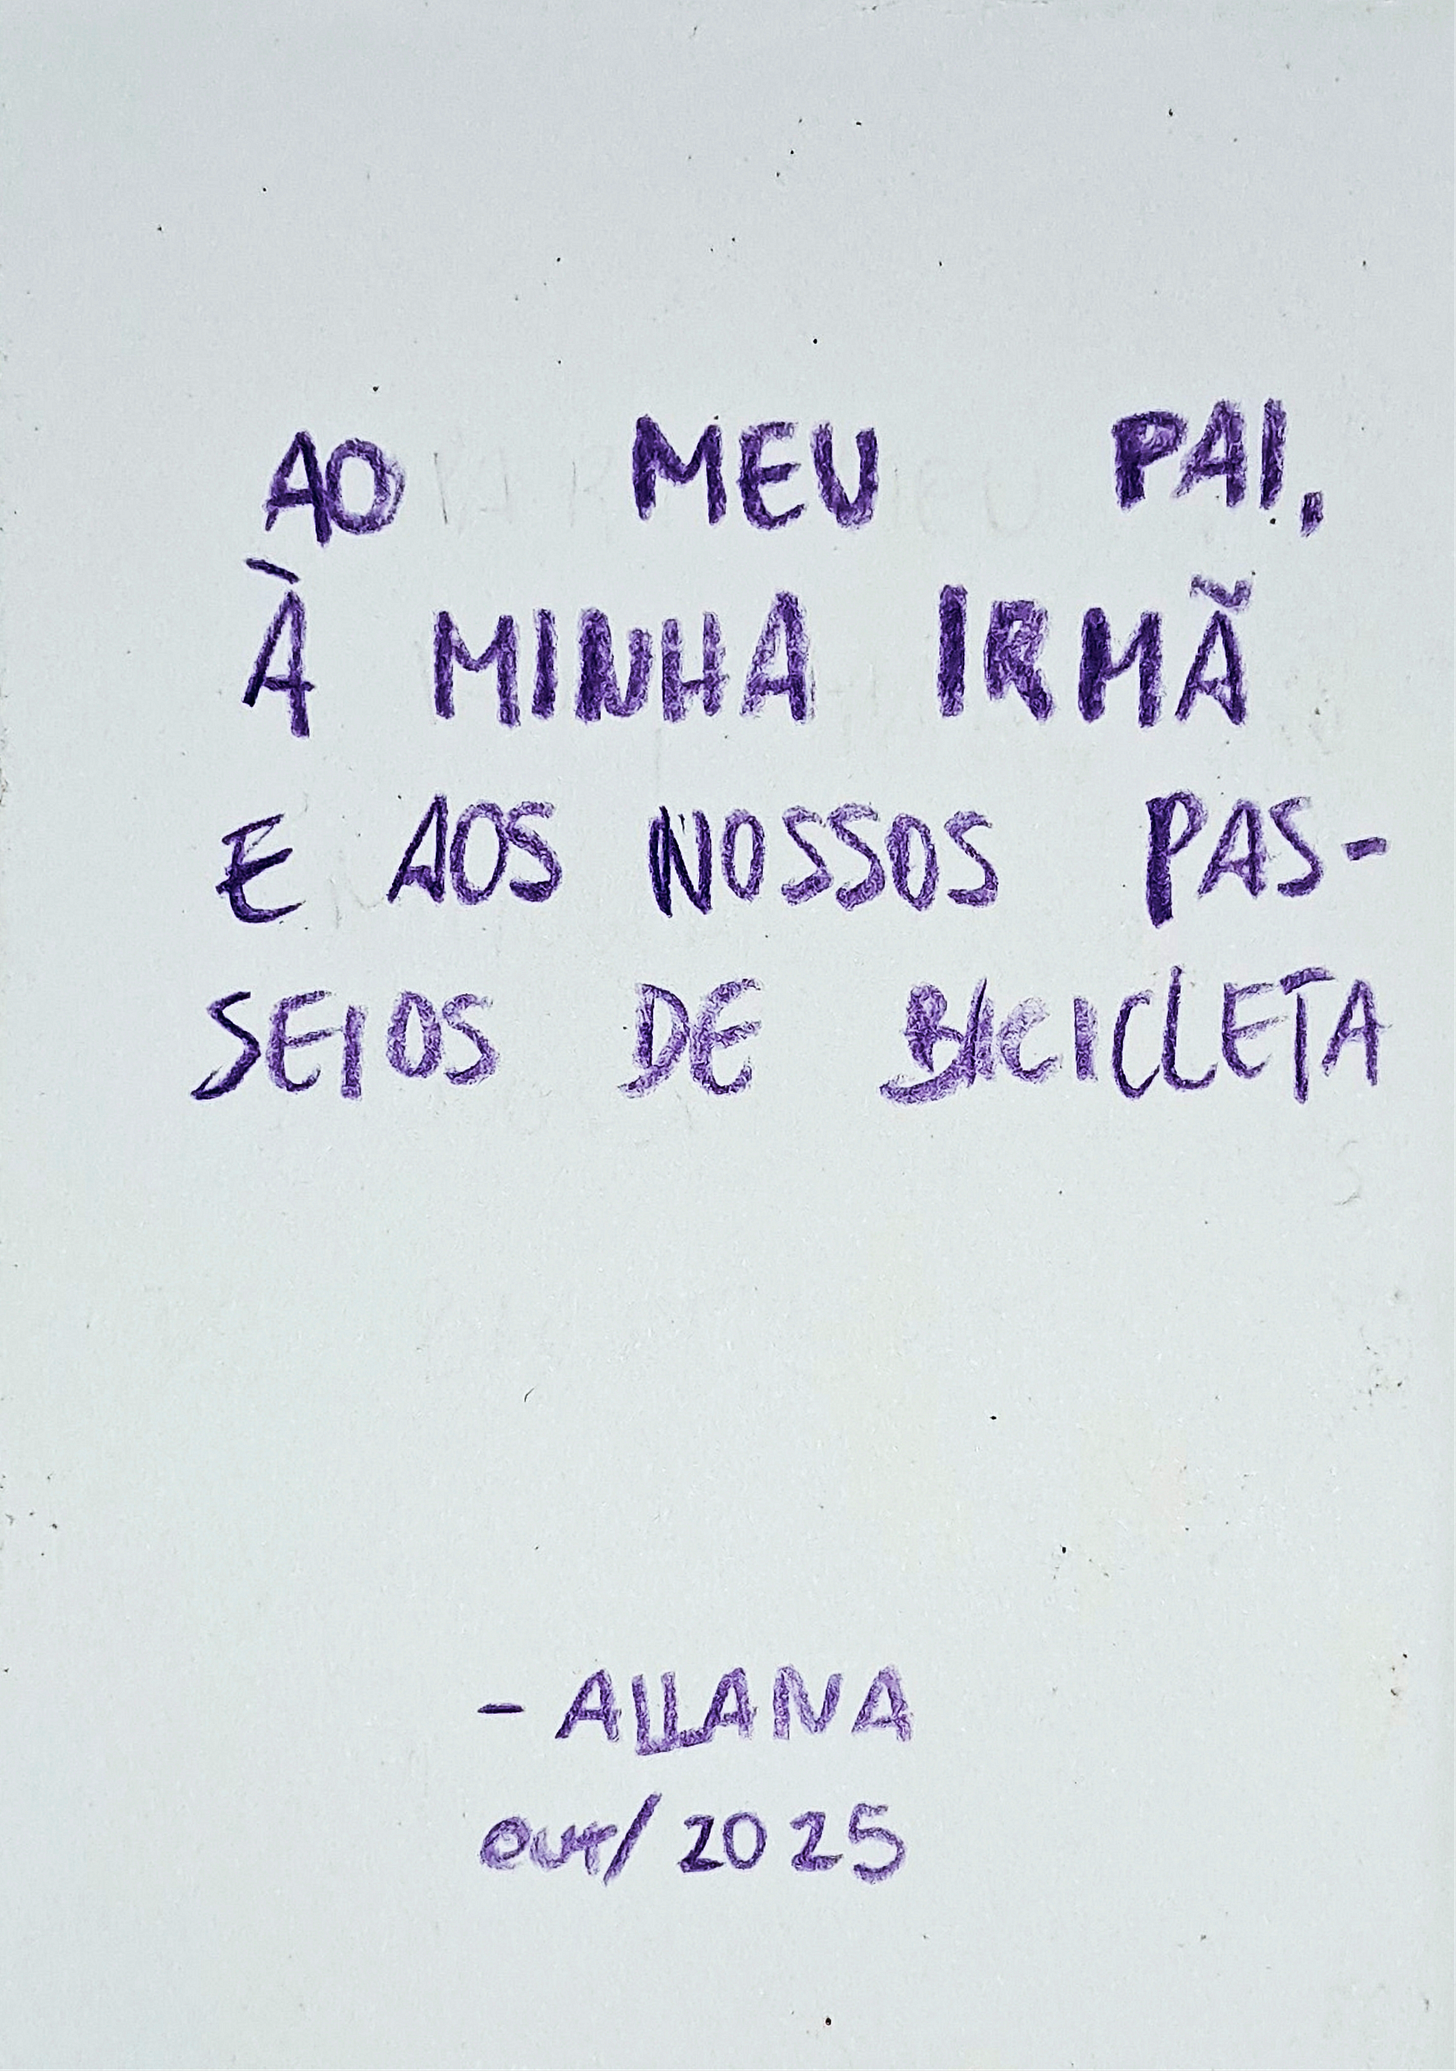 AO MEU PAI,
À MINHA IRMÃ
E AOS NOSSOS PAS-
SEIOS DE BICICLETA
- ALLANA
out/2025